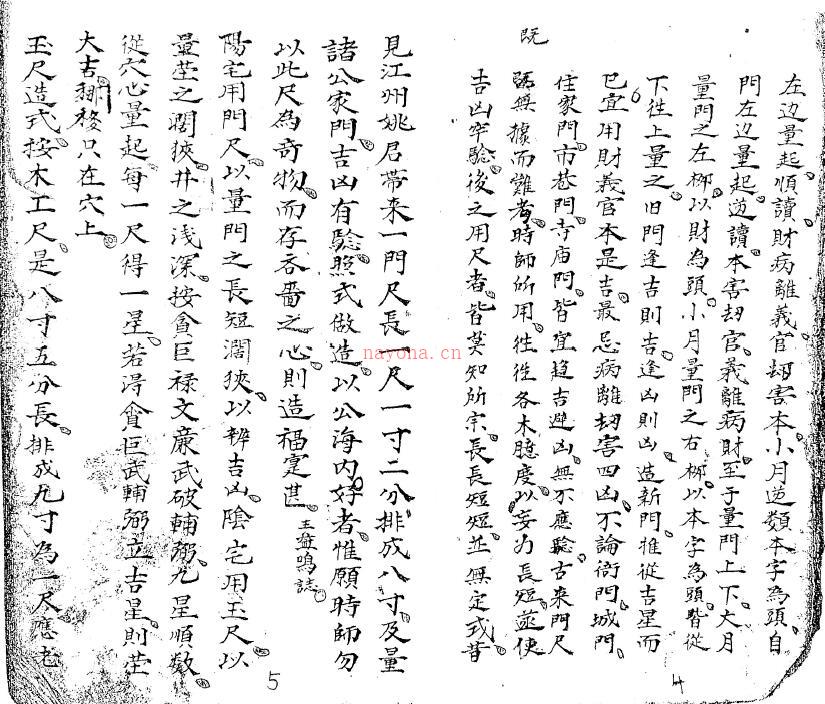 左边量起順讀財病離義官刼害本小月逆類本字為頭自
門左边量起逆讀本害刼官義離病財至于量門上下大月
量門之左栁以財為頭小月量門之右栁以本字為頭皆從
下徃上量之旧門逢吉則吉逢凶則凶造新門推從吉星而
巳宜用財義官本是吉最忌病離刼害四凶不論衙門城門
住家門市巷門寺庙門皆宜趋吉避凶無不應驗古来門尺
既無據而難考時師所用徃徃各木臆度以妄為長短並使
既
吉凶罕驗後之用尺者皆莫知所宗長長短短並無定式昔
4
見江州姚君帶来一門尺長一尺一寸二分排成八寸及量
諸公家門吉凶有驗照式做造以公海内好者惟願時師勿
以此尺為奇物而存吝嗇之心則造福寔甚 王益鳴誌
陽宅用門尺以量門之長短濶狹以辨吉凶陰宅用玉尺以
量茔之濶狹井之浅深按貪巨禄文廉武破輔弼九星順数
從穴心量起每一尺得一星若淂貪巨武輔弼立吉星則茔
大吉 只在穴上
玉尺造式按木工尺是八寸五分長排成九寸為一尺應老
5
nayona.cn